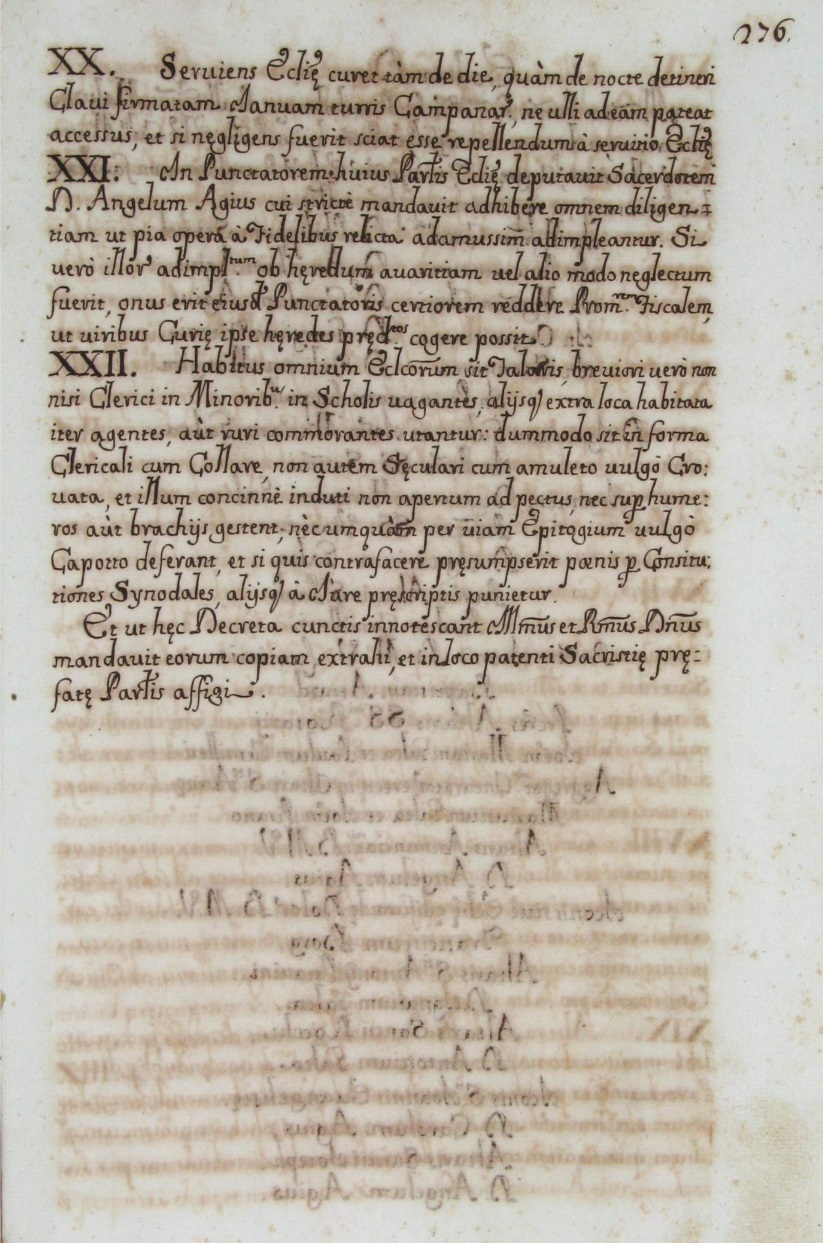 276.
XX. Seruiens Eclię curet tàm de die, quàm de nocte detineri
Claui firmatam Ianuam turris Campanar., ne ulli ad eàm pateat
accessus, et si negligens fuerit sciat esse repellendum à seruitio Eclię
XXI. In Punctatorem huius Parlis Eclię deputauit Sacerdotem
D. Angelum Agius cui strictè mandauit adhibere omnem diligen=
tiam ut pia opera à Fidelibus relicta adamussim adimpleantur. Si
uerò illor adimpl.tum ob hęredum auaritiam uel alio modo neglectum
fuerit, onus erit eiusd Punctatoris certiorem reddere Prom.rem Fiscalem,
ut uiribus Curię ipse hęredes pręd.tos cogere possit
XXII. Habitus omnium Eclcorum sit Talaris, breuiori uerò non
nisi Clerici in Minorib. in Scholis uagantes, alijsq extra loca habitata
iter agentes, aùt ruri commorantes utantur: dummodo sit in forma
Clericali cum Collare, non autem Sęculari cum amuleto uulgò Cro:
uata, et illum concinnè induti non apertum ad pectus, nec sup hume:
ros aùt brachijs gestent; nèc umquàm per uiam Epitogium uulgò
Capotto deferant, et si quis contrafacere pręsumpserit pœnis p Consitu:
tiones Synodales, alijsq à Iure pręscriptis punietur.
Et ut hęc Decreta cunctis innotescant Illmus et Rmus Dnus
mandauit eorum copiam extrahi, et in loco patenti Sacristię prę=
fatę Parlis affigi.